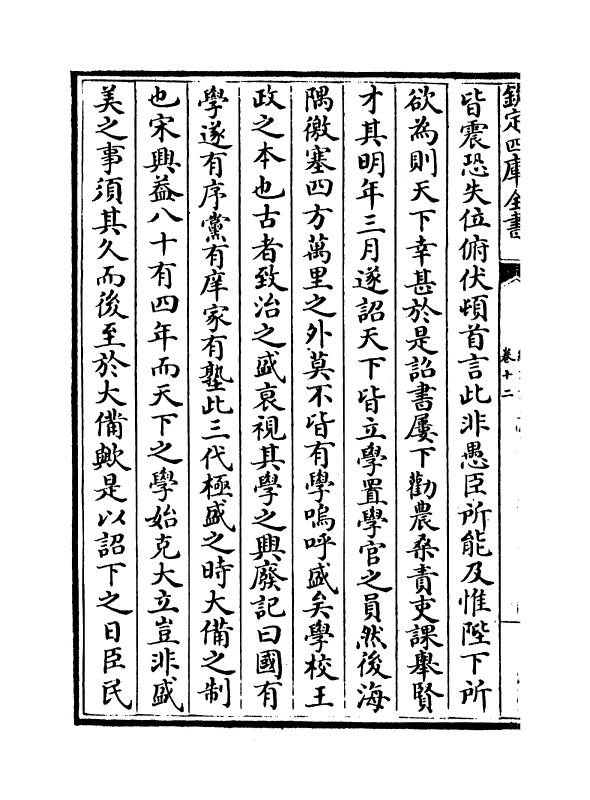 欽定四庫全書
卷十二
皆震恐失位俯伏頓首言此非愚臣所能及惟陛下所
欲為則天下幸甚於是詔書屢下勸農桑責吏課舉賢
才其明年三月遂詔天下皆立學置學官之員然後海
隅徼塞四方萬里之外莫不皆有學嗚呼盛矣學校王
政之本也古者致治之盛衰視其學之興廢記曰國有
學遂有序黨有庠家有塾此三代極盛之時大備之制
也宋興葢八十有四年而天下之學始克大立豈非盛
美之事須其久而後至於大備歟是以詔下之日臣民